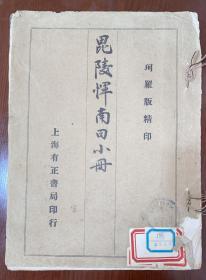 珂羅版精印
毘陵惲南田小冊
上海有正書局印行